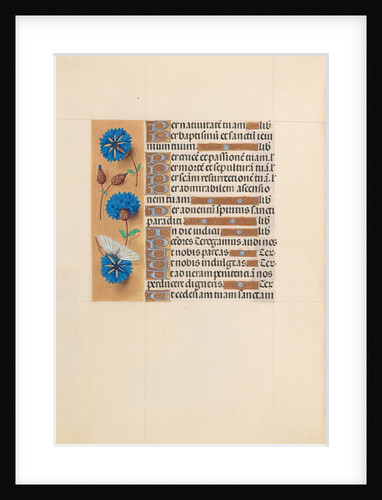 Per natiuitatē tuam lib
Per baptismū et sanctū ieiu
nium tuum. lib
Per crucē et passionē tuam. l'
Per mortē et sepulturā tuā. l'
Per scām resurrectionē tuā. l'
Per admirabilem ascensio
nem tuam lib
Per aduentū spiritus sancti
paracliti lib
In die iudicii lib
Peccatores Te rogamus audi nos
Ut nobis parcas Te r
Ut nobis indulgeas Te r
Ut ad ueram penitenciā nos
perducere digneris. Te r
Ut ecclesiam tuam sanctam